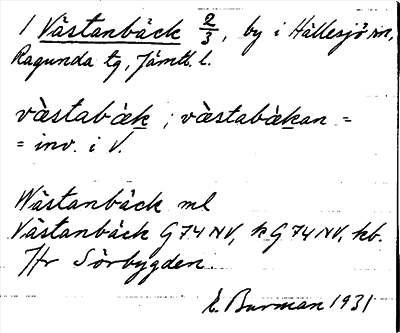 1 Västanbäck 2/3, by i Hällesjö sn,
Ragunda tg, Jämtl. l.
västabäk ; västabäkan =
= inv. i V.
Wästanbäck ml
Västanbäck G 74 NV, k G 74 NV, kb.
Hr Sörbygden
E. Burman 1931